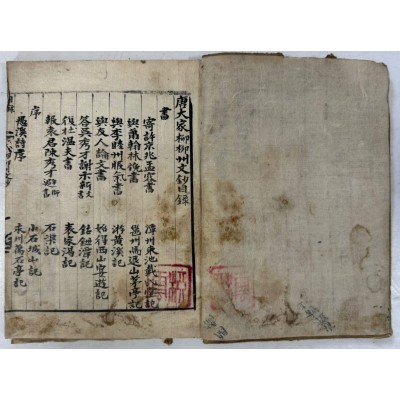 唐大家柳柳州文鈔目錄
書
寄許京兆孟容書 潭州東池戴氏堂記
與蕭翰林俛書 邕州馬退山茅亭記
與李睦州服氣書 游黃溪記
與友人論文書 始得西山宴遊記
答吳秀才謝示新文書 鈷鉧潭記
復杜溫夫書 袁家渴記
報袁君陳秀才避師 書 石渠記
序 小石城山記
愚溪詩序 永州萬石亭記